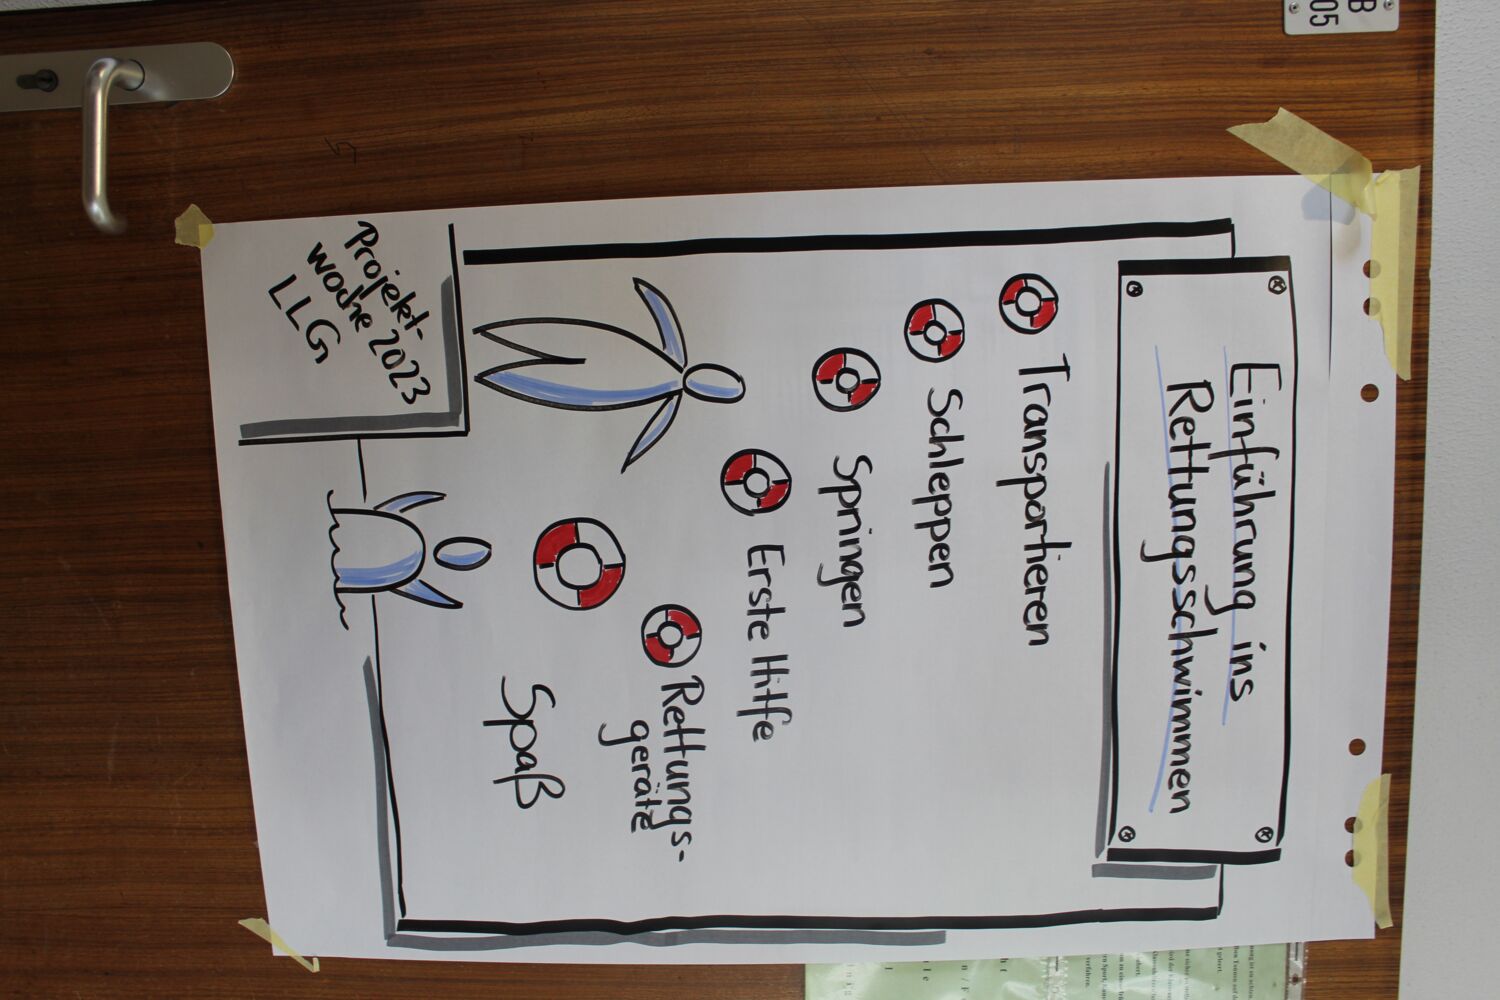 B
05
Einführung ins
Rettungsschwimmen
Transportieren
Schleppen
Springen
Erste Hilfe
Rettungs-
geräte
Spaß
Projekt-
woche 2023
LLG